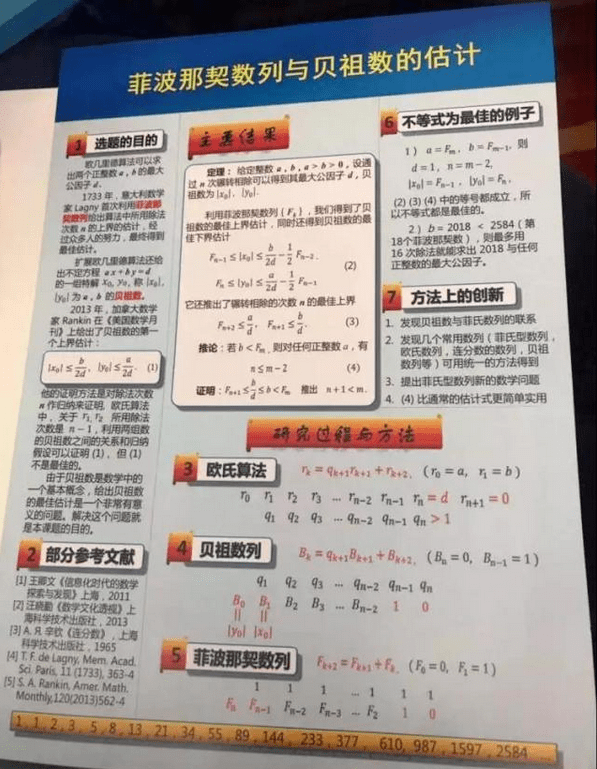 菲波那契数列与贝祖数的估计
1 选题的目的
欧几里德算法可以求
出两个正整数 a, b 的最大
公因子 d.
1733 年，意大利数学
家 Lagny 首次利用菲波那
契数列给出算法中所用除法
次数 n 的上界的估计，经
过众多人的努力，最终得到
最佳估计。
扩展欧几里德算法还给
出不定方程 ax+by=d
的一组特解 x₀, y₀, 称 |x₀|,
|y₀| 为 a, b 的贝祖数。
2013 年，加拿大数学
家 Rankin 在《美国数学月
刊》上给出了贝祖数的第一
个上界估计：
|x₀| ≤ b/2d, |y₀| ≤ a/2d. (1)
他的证明方法是对除法次数
n 作归纳来证明, 欧氏算法
中，关于 r₁, r₂ 所用除法
次数是 n − 1，利用两组数
的贝祖数之间的关系和归纳
假设可以证明 (1)、但 (1)
不是最佳的。
由于贝祖数是数学中的
一个基本概念，给出贝祖数
的最佳估计是一个非常有意
义的问题。解决这个问题就
是本课题的目的。
2 部分参考文献
[1] 王卿文《信息化时代的数学
探索与发现》上海，2011
[2] 汪晓勤《数学文化透视》上
海科学技术出版社，2013
[3] А. Я. 辛钦《连分数》, 上海
科学技术出版社，1965
[4] T. F. de Lagny, Mem. Acad.
Sci. Paris, 11 (1733), 363-4
[5] S. A. Rankin, Amer. Math.
Monthly,120(2013)562-4
主要结果
定理： 给定整数 a, b, a > b > 0, 设通
过 n 次辗转相除可以得到其最大公因子 d, 贝
祖数为 |x₀|, |y₀|.
利用菲波那契数列 {Fₖ}，我们得到了贝
祖数的最佳上界估计，同时还得到贝祖数的最
佳下界估计
Fₙ₋₁ ≤ |x₀| ≤ b/2d − 1/2 Fₙ₋₂.
(2)
Fₙ ≤ |y₀| ≤ a/2d − 1/2 Fₙ₋₁
它还推出了辗转相除的次数 n 的最佳上界
Fₙ₊₂ ≤ a/d, Fₙ₊₁ ≤ b/d. (3)
推论：若 b < Fₘ, 则对任何正整数 a，有
n ≤ m − 2 (4)
证明：Fₙ₊₁ ≤ b/d ≤ b < Fₘ 推出 n + 1 < m.
6 不等式为最佳的例子
1) a = Fₘ, b = Fₘ₋₁, 则
d = 1, n = m − 2,
|x₀| = Fₙ₋₁, |y₀| = Fₙ,
(2) (3) (4) 中的等号都成立，所
以不等式都是最佳的。
2) b = 2018 < 2584 (第
18个菲波那契数)，则最多用
16 次除法就能求出 2018 与任何
正整数的最大公因子。
7 方法上的创新
1. 发现贝祖数与菲氏数列的联系
2. 发现几个常用数列（菲氏型数列，
欧氏数列，连分数的数列，贝祖
数列等）可用统一的方法得到
3. 提出菲氏型数列新的数学问题
4. (4) 比通常的估计式更简单实用
研究过程与方法
3 欧氏算法 rₖ = qₖ₊₁rₖ₊₁ + rₖ₊₂, (r₀ = a, r₁ = b)
r₀ r₁ r₂ r₃ … rₙ₋₂ rₙ₋₁ rₙ = d rₙ₊₁ = 0
q₁ q₂ q₃ … qₙ₋₂ qₙ₋₁ qₙ > 1
4 贝祖数列 Bₖ = qₖ₊₁Bₖ₊₁ + Bₖ₊₂, (Bₙ = 0, Bₙ₋₁ = 1)
q₁ q₂ q₃ … qₙ₋₂ qₙ₋₁ qₙ
B₀ B₁ B₂ B₃ … Bₙ₋₂ 1 0
|| ||
|y₀| |x₀|
5 菲波那契数列 Fₖ₊₂ = Fₖ₊₁ + Fₖ, (F₀ = 0, F₁ = 1)
1 1 1 … 1 1 1
Fₙ Fₙ₋₁ Fₙ₋₂ Fₙ₋₃ … F₂ 1 0
1, 1, 2, 3, 5, 8, 13, 21, 34, 55, 89, 144, 233, 377, 610, 987, 1597, 2584 …